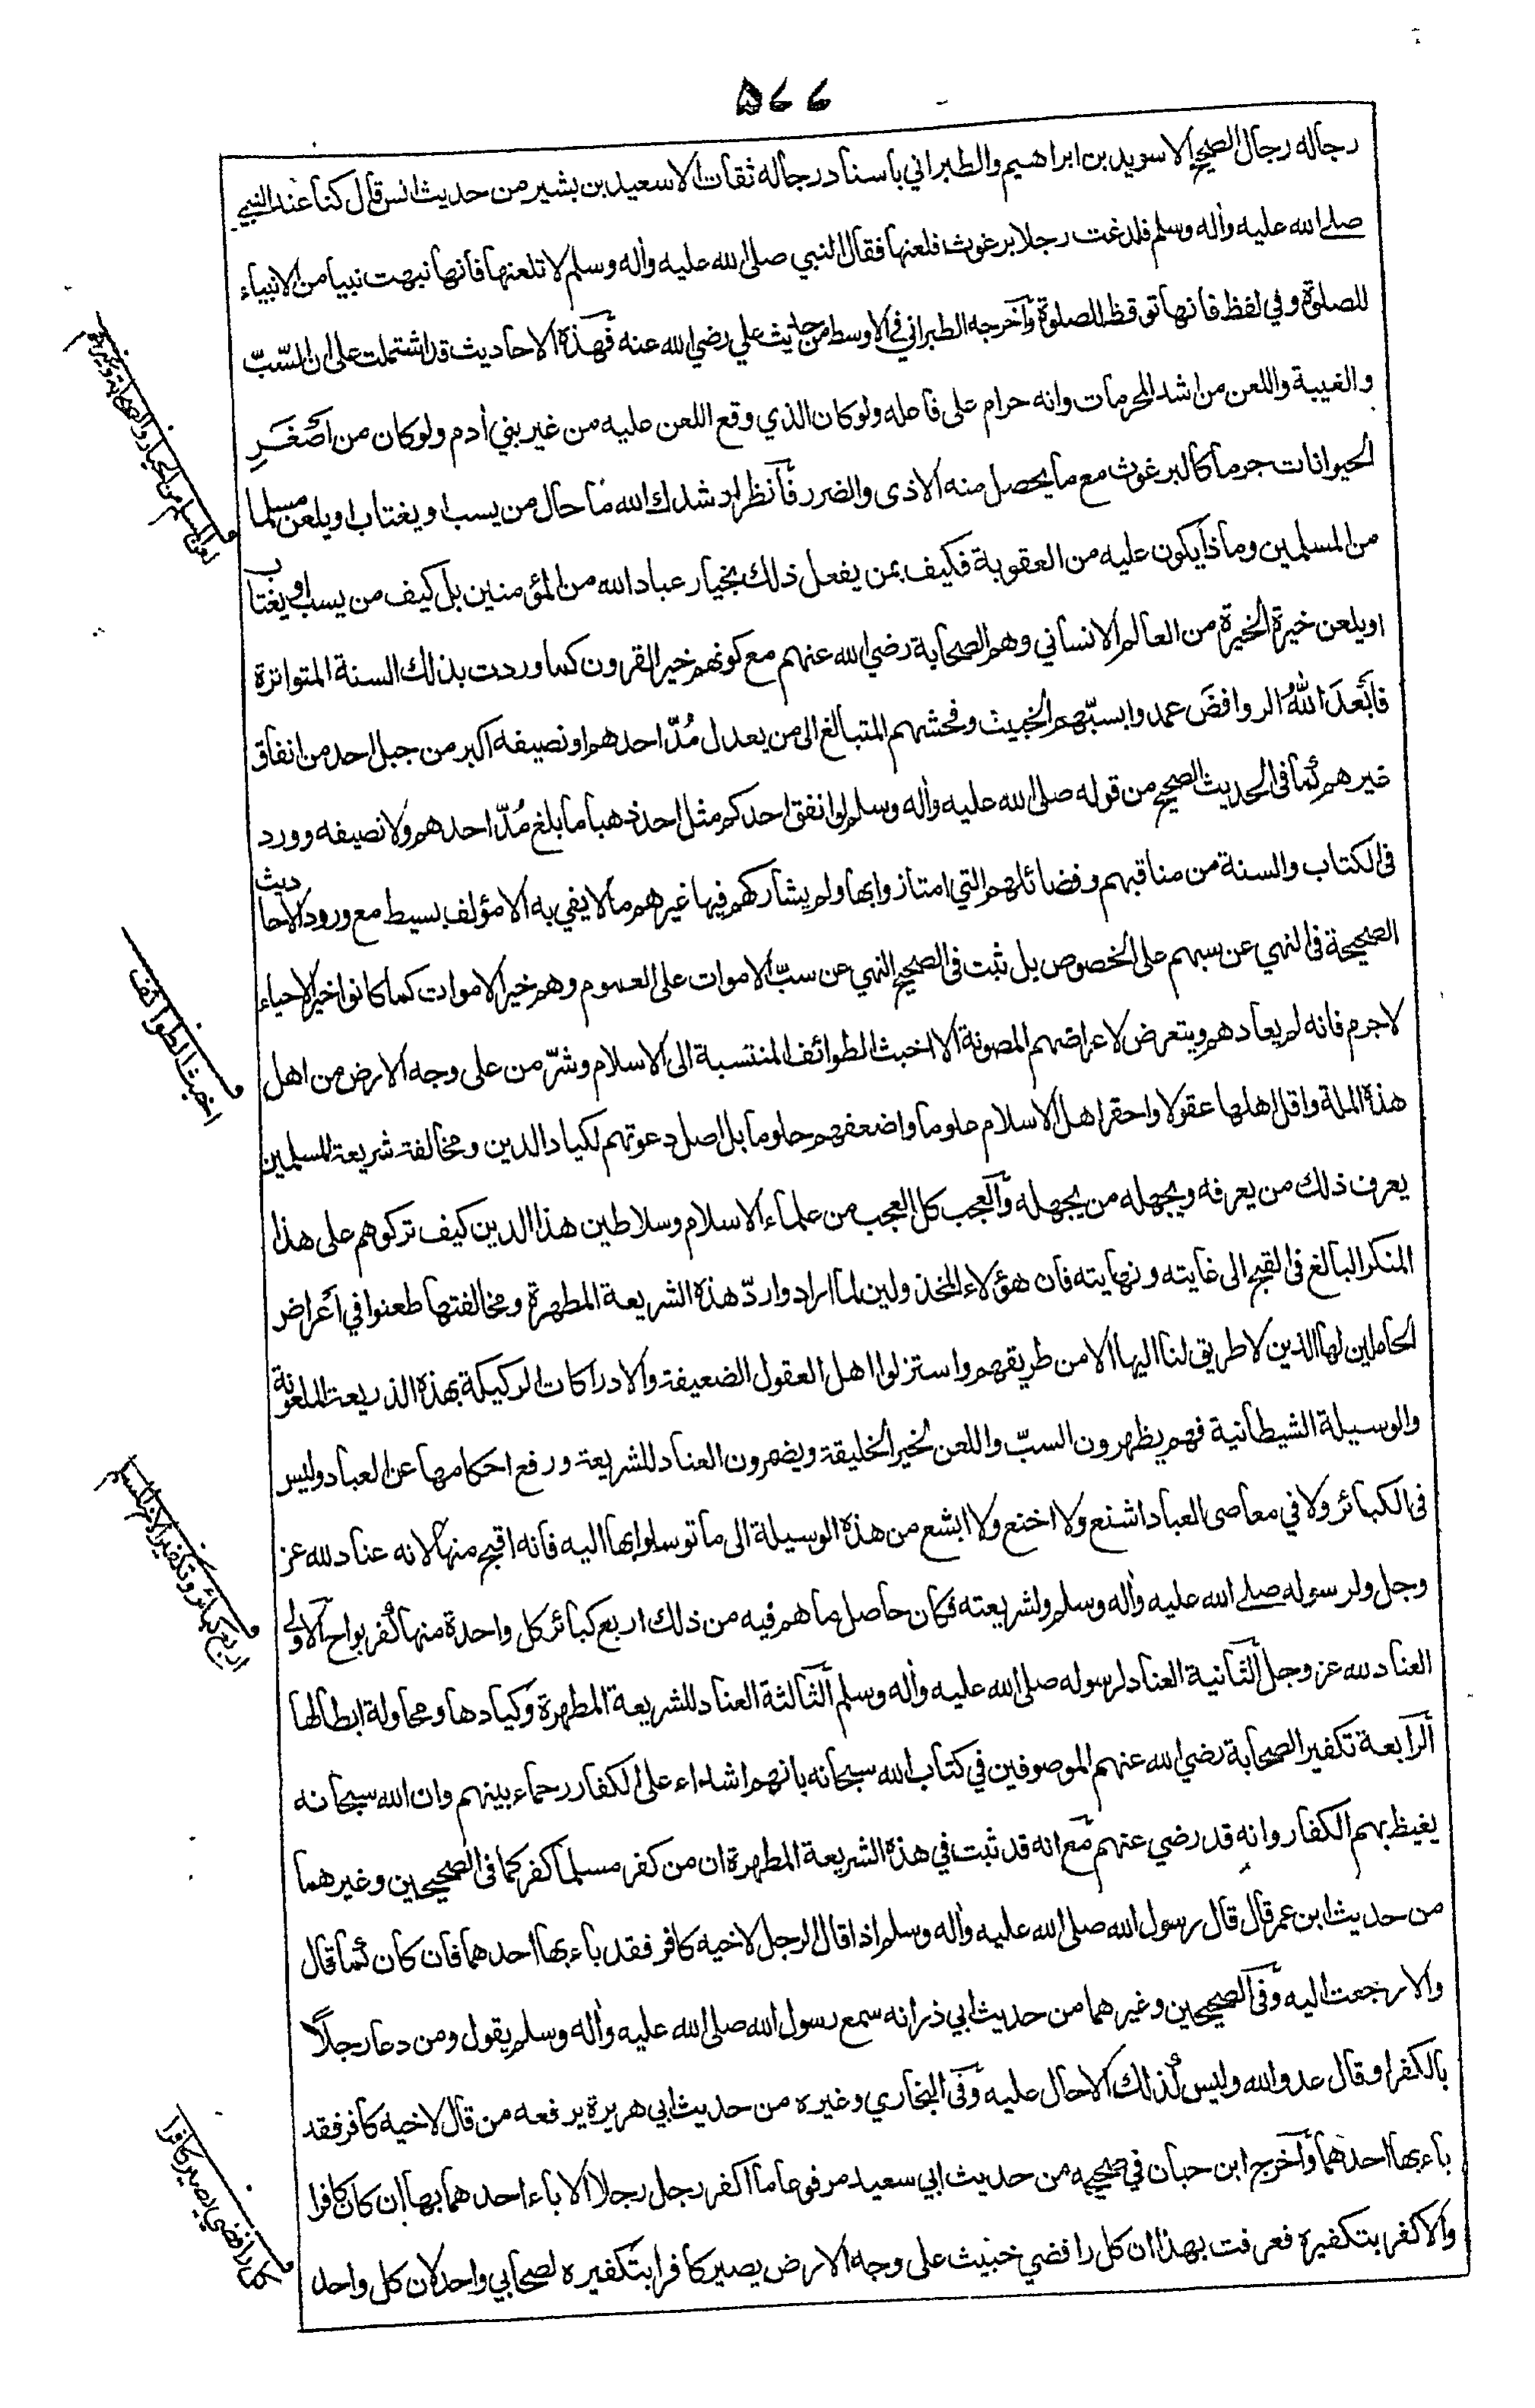 ۵۶۶
رجاله رجال الصحيح الا سويد بن ابراهيم والطبراني باسناد رجاله ثقات الا سعيد بن بشير من حديث انس قال كنا عند النبي
صلى الله عليه وأله وسلم فلدغت رجلا برغوث فلعنها فقال النبي صلى الله عليه وأله وسلم لا تلعنها فانها نبهت نبيا من الانبياء
للصلوة وفي لفظ فانها توقظ للصلوة وأخرجه الطبراني في الاوسط من حديث علي رضي الله عنه فهذه الاحاديث قد اشتملت على ان السّبّ
والغيبة واللعن من اشد المحرمات وانه حرام على فاعله ولو كان الذي وقع اللعن عليه من غير بني أدم ولو كان من اَصْغَرِ
الحيوانات جرما كالبرغوث مع ما يحصل منه الاذى والضرر فأنظر ارشدك الله ما حال من يسب او يغتاب او يلعن مسلما
من المسلمين وماذا يكون عليه من العقوبة فكيف بمن يفعل ذلك بخيار عباد الله من المؤمنين بل كيف من يسب او يغتاب
او يلعن خيرة الخيرة من العالم الانساني وهم الصحابة رضي الله عنهم مع كونهم خير القرون كما وردت بذلك السنة المتواترة
فاَبْعَدَ اللهُ الروافضَ عمدوا بسبّهم الخبيث وفحشهم المتبالغ الى من يعدل مُدّ احدهم او نصيفه اكبر من جبل احد من انفاق
غيرهم كما فى الحديث الصحيح من قوله صلى الله عليه وأله وسلم لو انفق احدكم مثل احد ذهبا ما بلغ مُدّ احدهم ولا نصيفه وورد
فى الكتاب والسنة من مناقبهم وفضائلهم التي امتازوا بها ولم يشاركهم فيها غيرهم ما لا يفي به الا مؤلف بسيط مع ورود الاحاديث
الصحيحة فى النهي عن سبهم على الخصوص بل ثبت فى الصحيح النهي عن سبّ الاموات على العموم وهم خير الاموات كما كانوا خير الاحياء
لا جرم فانه لم يعادهم ويتعرض لاعراضهم المصونة الا اخبث الطوائف المنتسبة الى الاسلام وشرّ من على وجه الارض من اهل
هذه الملة واقل اهلها عقولا واحقر اهل الاسلام علوما واضعفهم حلوما بل اصل دعوتهم لكياد الدين ومخالفة شريعة المسلمين
يعرف ذلك من يعرفه ويجهله من يجهله وألعجب كل العجب من علماء الاسلام وسلاطين هذا الدين كيف تركوهم على هذا
المنكر البالغ فى القبح الى غايته ونهايته فان هؤلاء المخذولين لما ارادوا ردّ هذه الشريعة المطهرة ومخالفتها طعنوا في أعراض
الحاملين لها الذين لا طريق لنا اليها الا من طريقهم واستزلوا اهل العقول الضعيفة والادراكات الركيكة بهذه الذريعة الملعونة
والوسيلة الشيطانية فهم يظهرون السبّ واللعن لخير الخليقة ويضمرون العناد للشريعة ورفع احكامها عن العباد وليس
فى الكبائر ولا في معاصى العباد اشنع ولا اخنع ولا ابشع من هذه الوسيلة الى ما توسلوا بها اليه فانه اقبح منها لانه عناد لله عز
وجل ولرسوله صلى الله عليه وأله وسلم ولشريعته فكان حاصل ما هم فيه من ذلك اربع كبائر كل واحدة منها كُفر بواح ألاولى
العناد لله عز وجل ألثانية العناد لرسوله صلى الله عليه وأله وسلم ألثالثة العناد للشريعة المطهرة وكيادها ومحاولة ابطالها
ألرابعة تكفير الصحابة رضي الله عنهم الموصوفين في كتاب الله سبحانه بانهم اشداء على الكفار رحماء بينهم وان الله سبحانه
يغيظ بهم الكفار وانه قد رضي عنهم مع انه قد ثبت في هذه الشريعة المطهرة ان من كفر مسلما كفر كما فى الصحيحين وغيرهما
من حديث ابن عمر قال قال رسول الله صلى الله عليه وأله وسلم اذا قال الرجل لاخيه كافر فقد باء بها احدهما فان كان كما قال
والا رجعت اليه وفى الصحيحين وغيرهما من حديث ابي ذر انه سمع رسول الله صلى الله عليه وأله وسلم يقول ومن دعا رجلاً
بالكفر او قال عدو الله وليس كذلك الا حال عليه وفى البخاري وغيره من حديث ابي هريرة يرفعه من قال لاخيه كافر فقد
باء بها احدهما وأخرج ابن حبان في صحيحه من حديث ابي سعيد مرفوعا ما اكفر رجل رجلا الا باء احدهما بها إن كان كافرا
والا كفر بتكفيره فعرفت بهذا ان كل رافضي خبيث على وجه الارض يصير كافرا بتكفيره لصحابي واحد لان كل واحد
لعن المسلم من الجبار والصحابة وغيرهم
اخبث الطوائف
اربع كبائر وتكفير
كل رافضي يصير كافرا